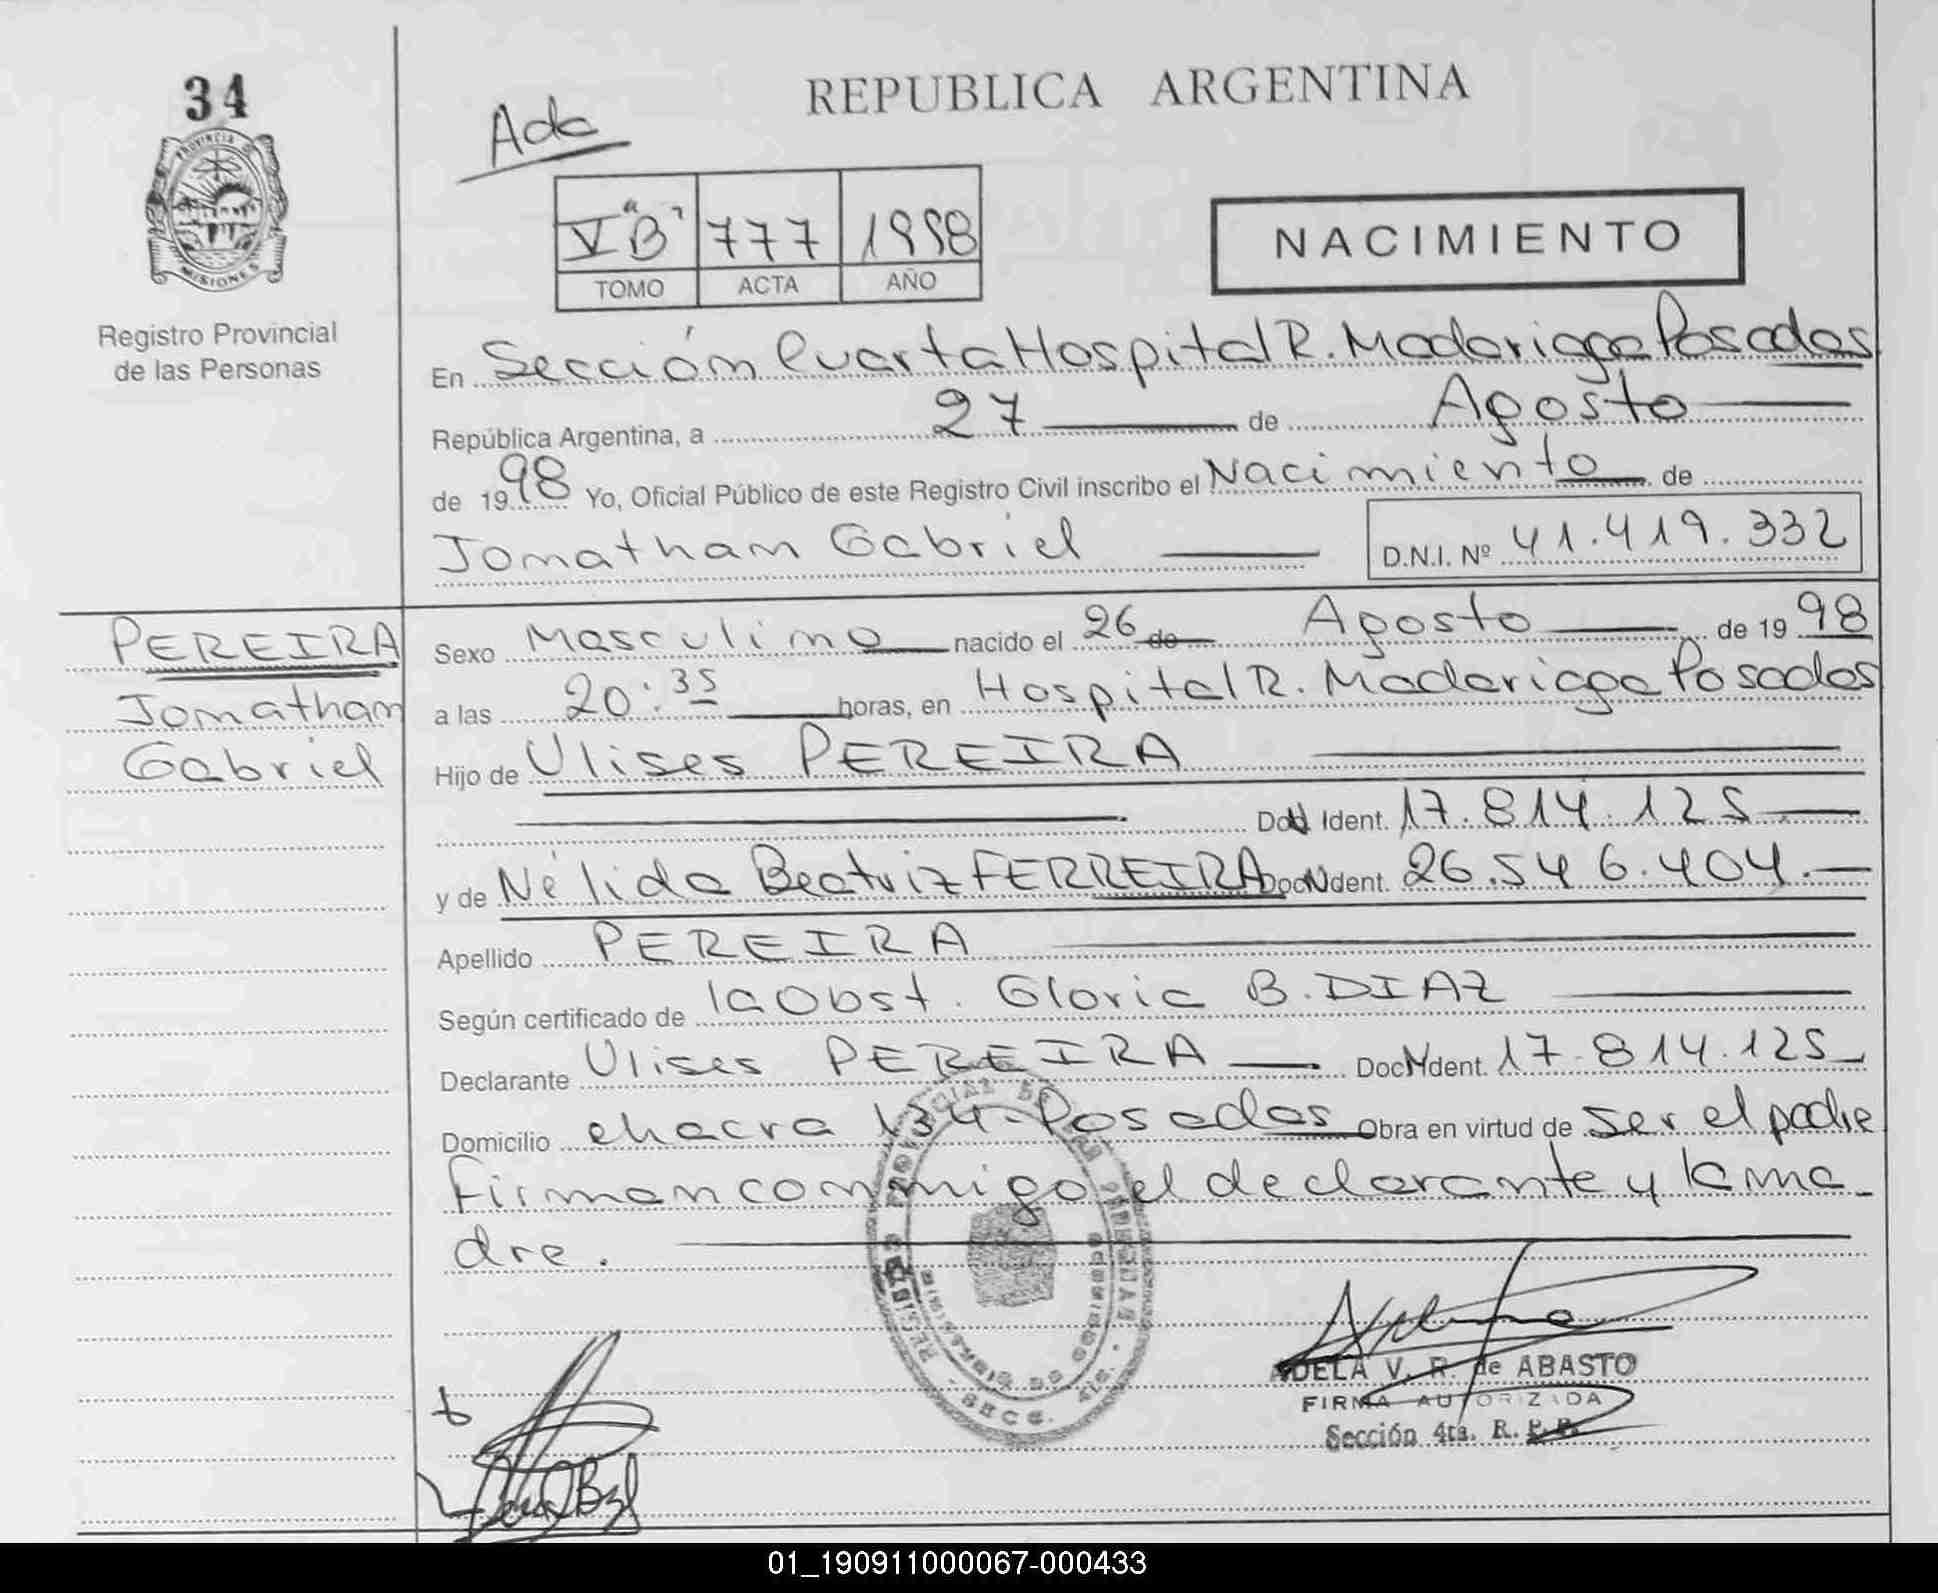 34
PROVINCIA DE
MISIONES
Registro Provincial
de las Personas
REPUBLICA ARGENTINA
V "B" 777 1998
TOMO ACTA AÑO
NACIMIENTO
En Sección Cuarta Hospital R. Madariaga Posadas
República Argentina, a 27 de Agosto
de 1998 Yo, Oficial Público de este Registro Civil inscribo el Nacimiento de
Jonathan Gabriel D.N.I. Nº 41.419.332
PEREIRA
Jonathan
Gabriel
Sexo Masculino nacido el 26 de Agosto de 1998
a las 20:35 horas, en Hospital R. Madariaga Posadas
Hijo de Ulises PEREIRA
Ident. 17.814.125
y de Nélida Beatriz FERREIRA Doc Ident. 26.546.404.
Apellido PEREIRA
Según certificado de la Obst. Gloria B. DIAZ
Declarante Ulises PEREIRA Doc Ident. 17.814.125
Domicilio chacra 134 - Posadas Obra en virtud de ser el padre
Firman conmigo el declarante y la ma-
dre.
ADELA V. R. de ABASTO
FIRMA AUTORIZADA
Sección 4ta. R. P. P.
01_190911000067-000433